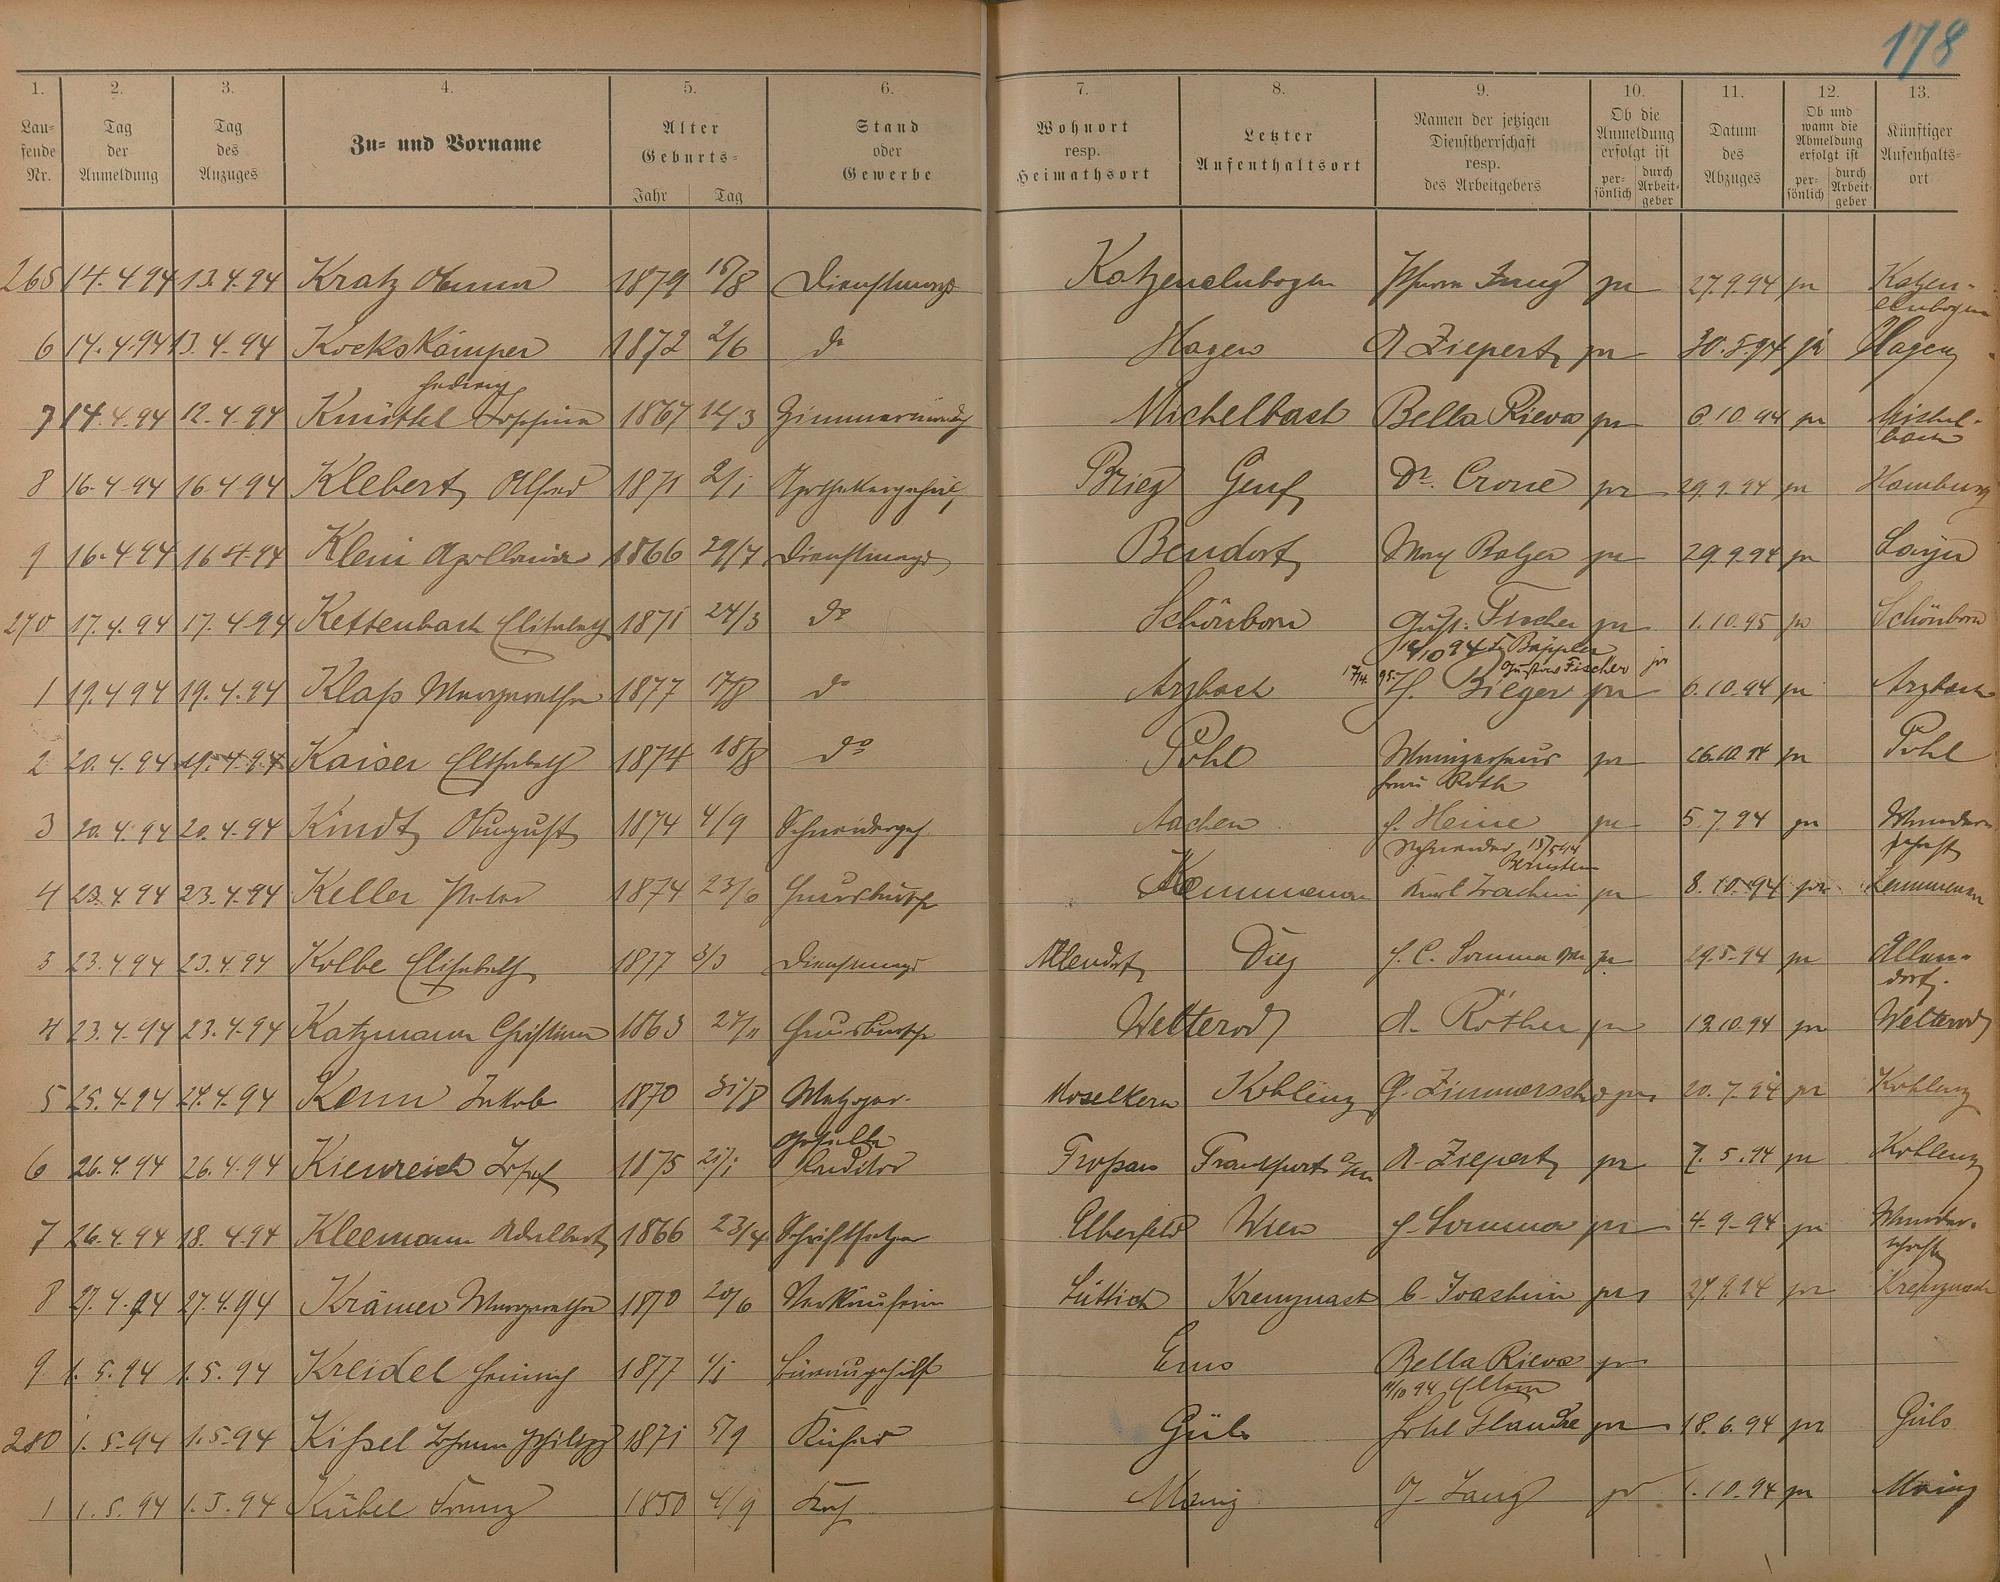 178
1. 2. 3. 4. 5. 6. 7. 8. 9. 10. 11. 12. 13.
Laufende Nr. Tag der Anmeldung Tag des Anzuges Zu= und Vorname Alter Geburts= Jahr Tag Stand oder Gewerbe Wohnort resp. Heimathsort Letzter Aufenthaltsort Namen der jetzigen Dienstherrschaft resp. des Arbeitgebers Ob die Anmeldung erfolgt ist persönlich durch Arbeitgeber Datum des Abzuges Ob und wann die Abmeldung erfolgt ist persönlich durch Arbeitgeber Künftiger Aufenhalts=ort
265 14.4.94 13.4.94 Kratz 1879 18/8 Dienstmagd Katzenelnbogen Pfarrer Jung pr 27.9.94 pr Katzen-
elnbogen
6 14.4.94 13.4.94 Kockskämper 1872 2/6 do Hagen A Ziepert pr 30.5.94 pr Hagen
Hedwig
7 14.4.94 12.4.94 Knüttel Josefine 1867 12/3 Zimmermädch Michelbach Bella Rieva pr 6.10.94 pr Michel-
bach
8 16.4.94 16.4.94 Klebert Alfred 1871 2/1 Apothekergehilf Brieg Genf Dr. Crone pr 29.9.94 pr Hamburg
9 16.4.94 16.4.94 Klein Apollonia 1866 29/7 Dienstmagd Bendorf Max Balzer pr 29.9.94 pr
270 17.4.94 17.4.94 Kettenbach Elisabeth 1871 24/3 do Schönborn Gust. Fischer pr 1.10.95 pr Schönborn
10/10 94 Bäppler
17/4. 95. Gustav Fischer pr
1 19.4.94 19.4.94 Klaß Margarethe 1877 17/8 do Arzbach H. Bieger pr 6.10.94 pr Arzbach
2 20.4.94 19.4.94 Kaiser Elisabeth 1874 18/8 do Pohl pr 26.10.94 pr Pohl
Frau Roth
3 20.4.94 20.4.94 Kindt August 1874 4/9 Schneiderges Aachen f. Heine pr 5.7.94 pr Wander-
schaft
Schneider 15/5 94
Bernstein
4 23.4.94 23.4.94 Keller Peter 1874 23/6 Hausbursche Kemmenau Kurt Joachim pr 8.10.94 pr Kemmenau
5 23.4.94 23.4.94 Kolbe Elisabeth 1877 3/3 Dienstmagd Allendorf Diez f. C. Sommer pr 29.5.94 pr Allen-
dorf.
4 23.4.94 23.4.94 Katzmann Christian 1863 24/11 Hausbursche Welterod A. Röther pr 13.10.94 pr Welterod
5 25.4.94 24.4.94 Kenn Jakob 1870 31/8 Metzger- Moselkern Koblenz G. Zimmerschd pr 20.7.94 pr Koblenz
geselle
6 26.4.94 26.4.94 Kienreich Josef 1875 21/1 Conditor Troßau Frankfurt a/M A. Ziepert pr 7.5.94 pr Koblenz
7 26.4.94 18.4.94 Kleemann Adelbert 1866 23/4 Schriftsetzer Elberfeld Wien f. Sommer pr 4-9-94 pr Wander-
schaft
8 27.4.94 27.4.94 Krämer Margarethe 1870 20/6 Verkäuferin Lüttich Kreuznach C. Joachim pr 27.9.94 pr Kreuznach
9 1.5.94 1.5.94 Kreidel Heinrich 1877 4/1 Büreaugehilfe Ems Bella Rieva pr
11/10 94 Eltern
280 1.5.94 1.5.94 Kißel Johann Philipp 1871 5/9 Küfer Güls Hotel Flandre pr 18.6.94 pr Güls
1 1.5.94 1.5.94 Kübel Franz 1850 4/9 Koch Mainz J. Lang pr 1.10.94 pr Mainz